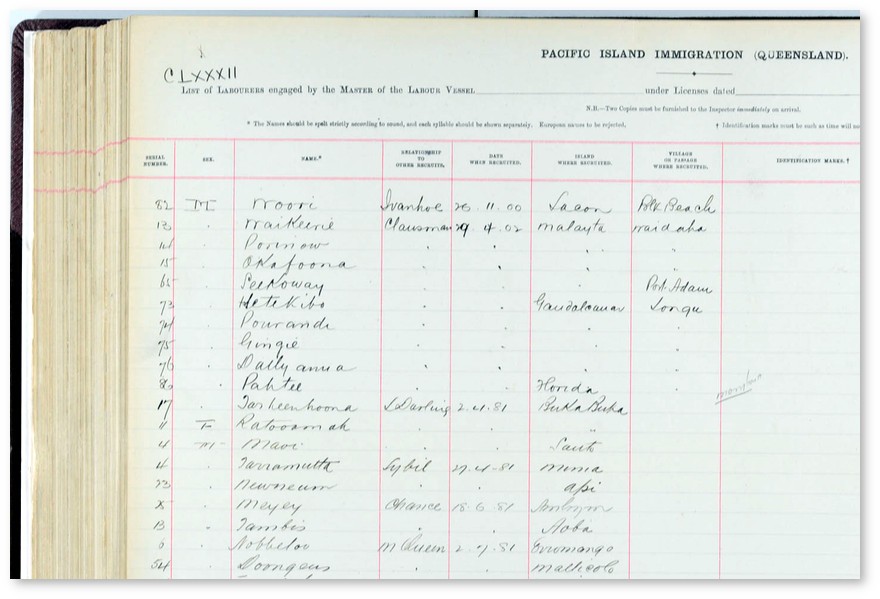 CLXXXII
PACIFIC ISLAND IMMIGRATION (QUEENSLAND).
LIST OF LABOURERS engaged by the MASTER of the LABOUR VESSEL under Licenses dated
N.B.—Two Copies must be furnished to the Inspector immediately on arrival.
* The Names should be spelt strictly according to sound, and each syllable should be shown separately. European names to be rejected. † Identification marks must be such as time will no
SERIAL NUMBER. SEX. NAME.* RELATIONSHIP TO OTHER RECRUITS. DATE WHEN RECRUITED. ISLAND WHERE RECRUITED. VILLAGE OR PASSAGE WHERE RECRUITED. IDENTIFICATION MARKS.†
82 M Woori Ivanhoe 11.00 Beach
13 Clausman 4.02 Malayta
Porinow
15 Okafoona
65 Seekoway Port Adam
73 Hetekibo Guadalcanar Longu
74 Pourandi
75 Gingie
76 Dallyanna
Pahtee Florida
17 Tasheenhoona S Darling 2.4.81 Buka Buka
F Ratoosmah
4 M Mavi Santo
4 Tarramutta Sybil 27.4.81
Newneum Api
8 Meyey Chance 18.6.81
13 Tambis Aoba
6 Nobbelow M Queen 2.7.81 Erromanga
54 Doongeus Mallicolo